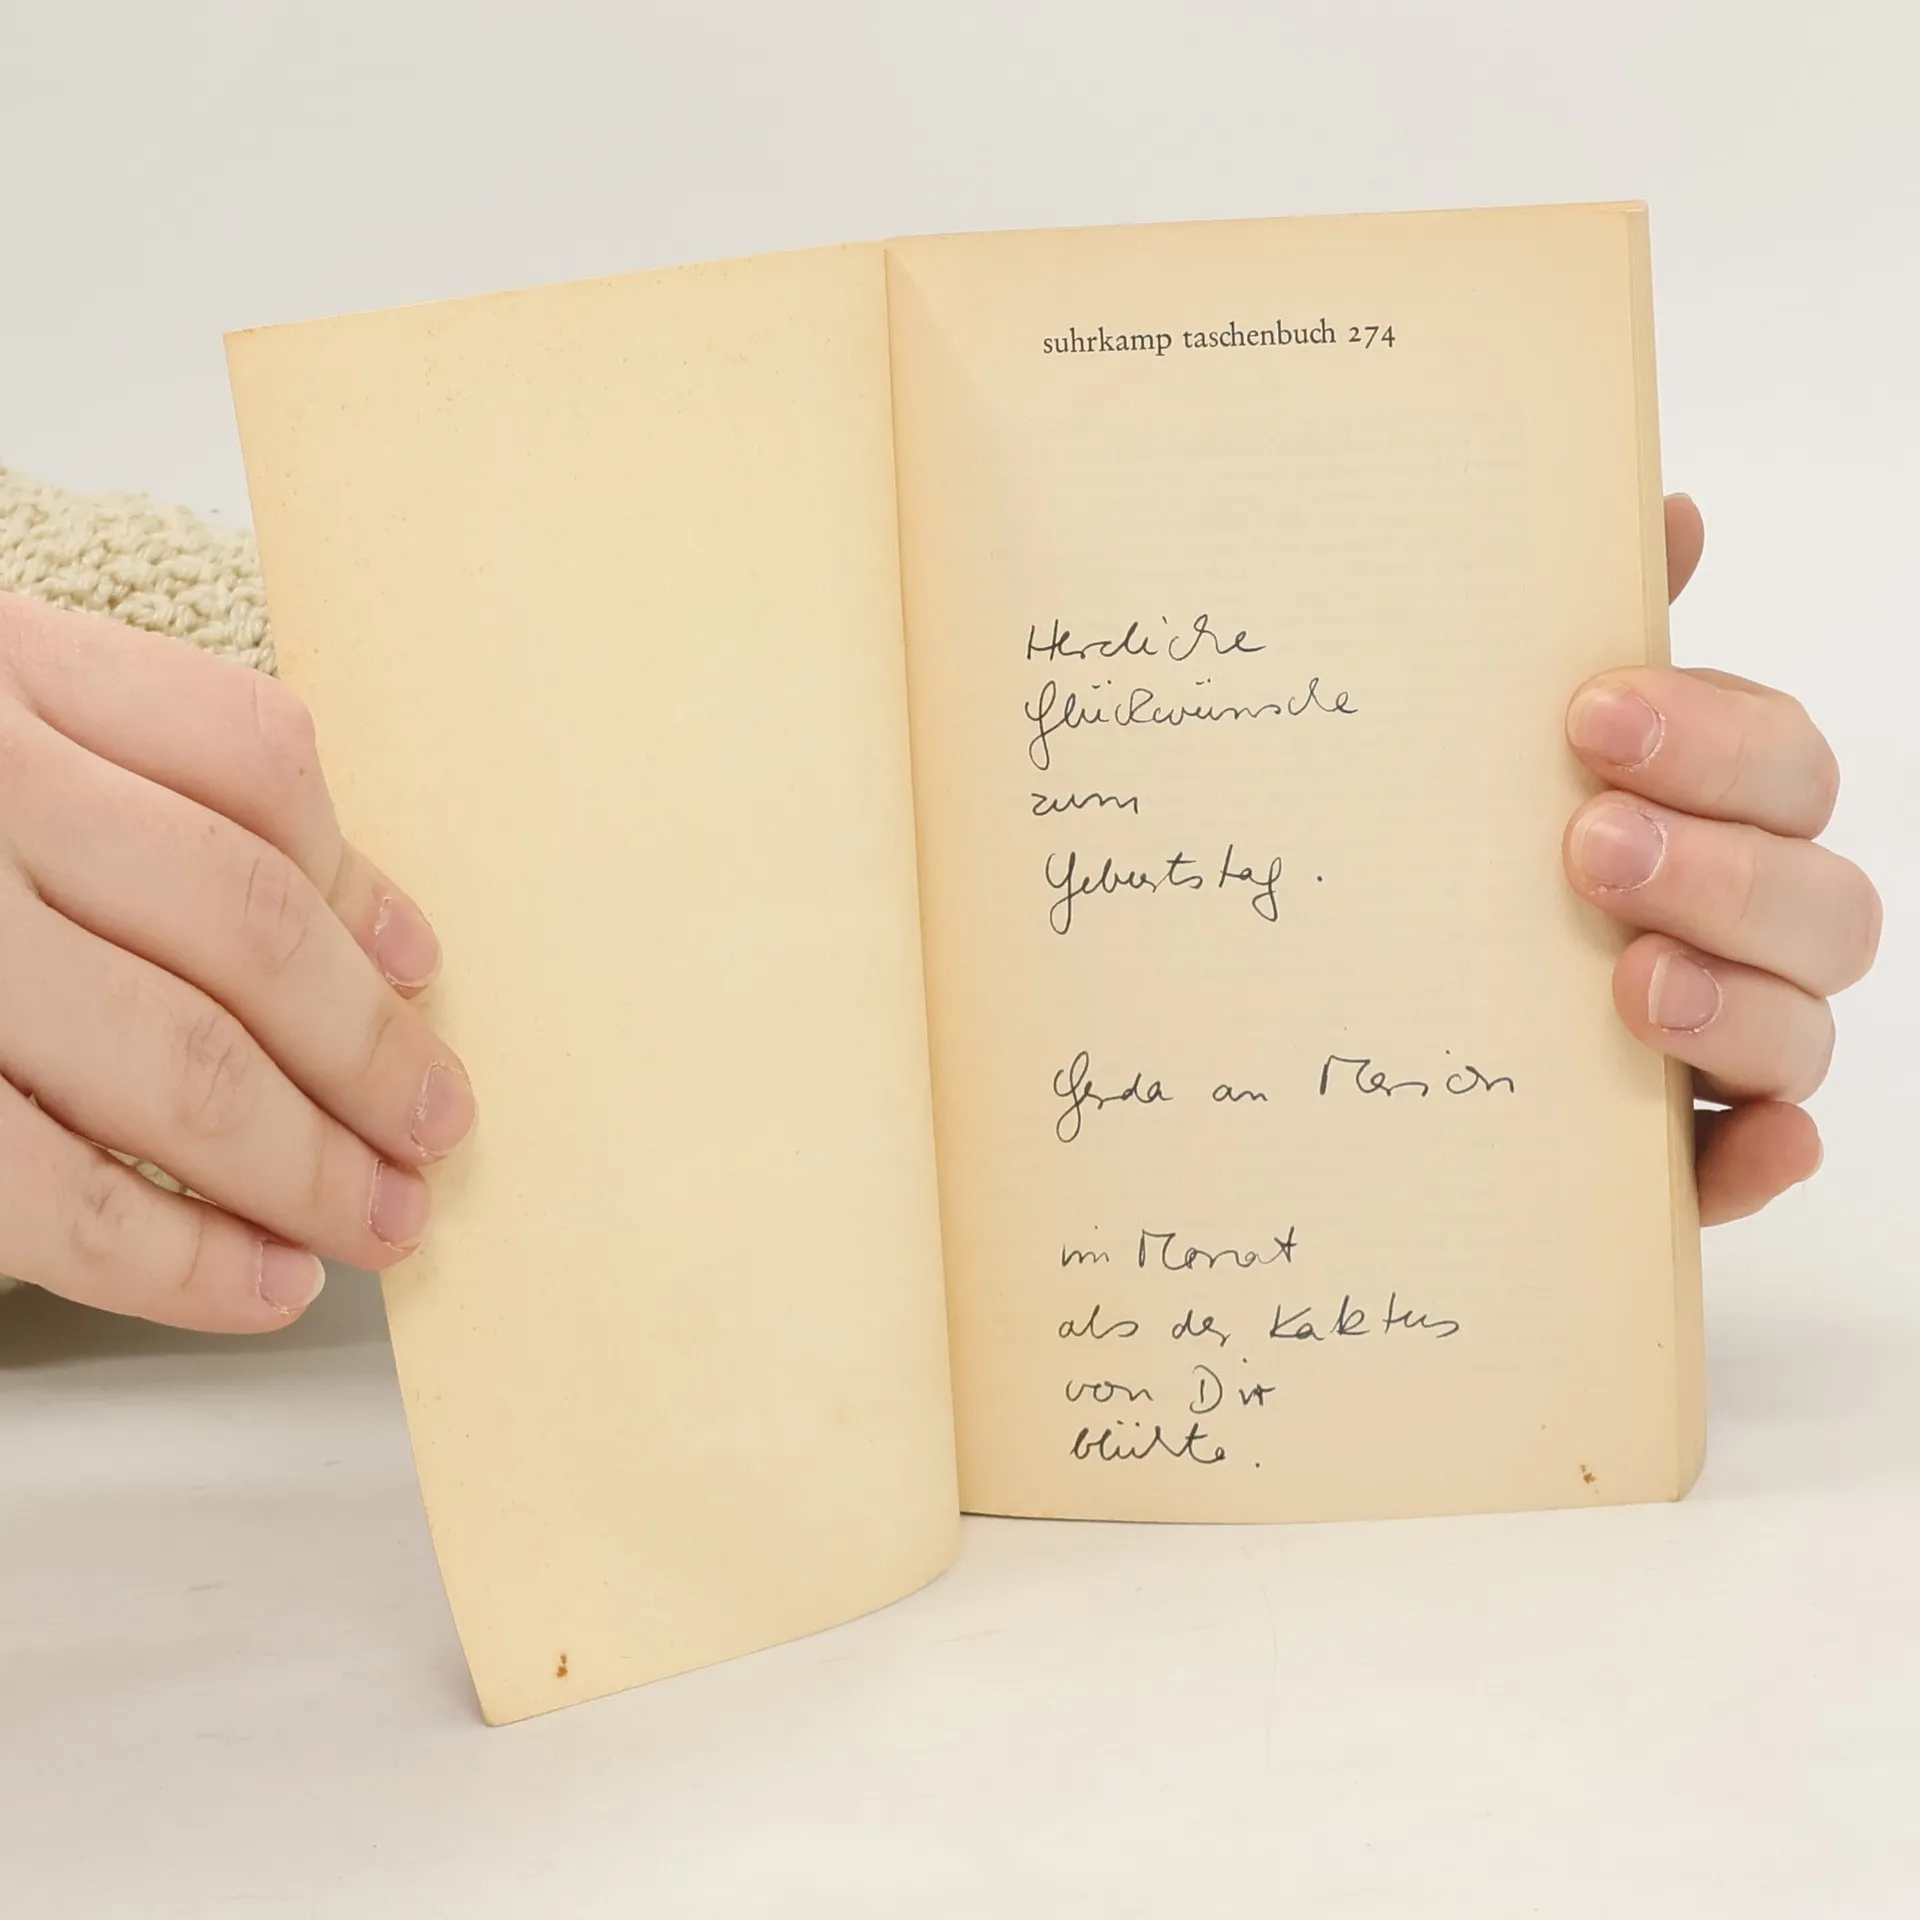 suhrkamp taschenbuch 274
Herzliche
Glückwünsche
zum
Geburtstag.
Gerda an Marion
im Monat
als der Kaktus
von Dir
blühte.